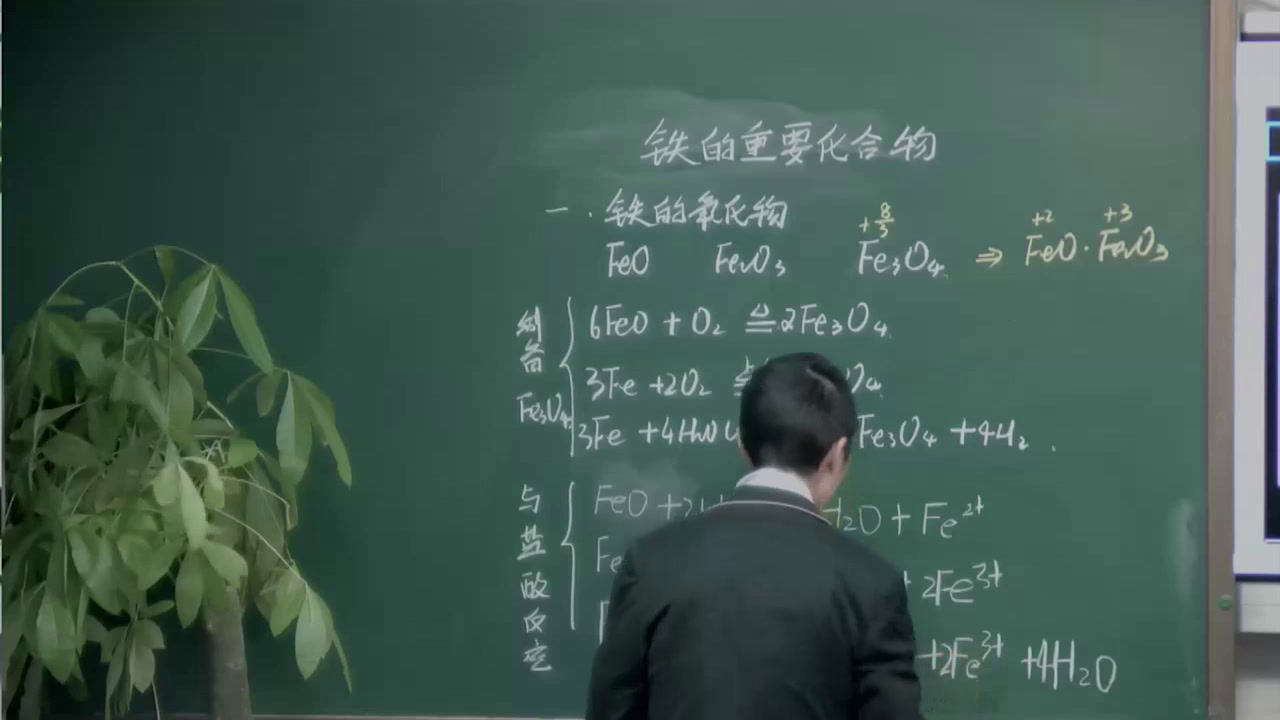 铁的重要化合物
一.铁的氧化物
+8/3 +2 +3
FeO Fe₂O₃ Fe₃O₄ ⇒ FeO·Fe₂O₃
制备Fe₃O₄
6FeO + O₂ ≜ 2Fe₃O₄
3Fe + 2O₂ O₄
3Fe + 4H₂O( Fe₃O₄ + 4H₂
与盐酸反应
FeO + 2H H₂O + Fe²⁺
Fe + 2Fe³⁺
+ 2Fe³⁺ + 4H₂O